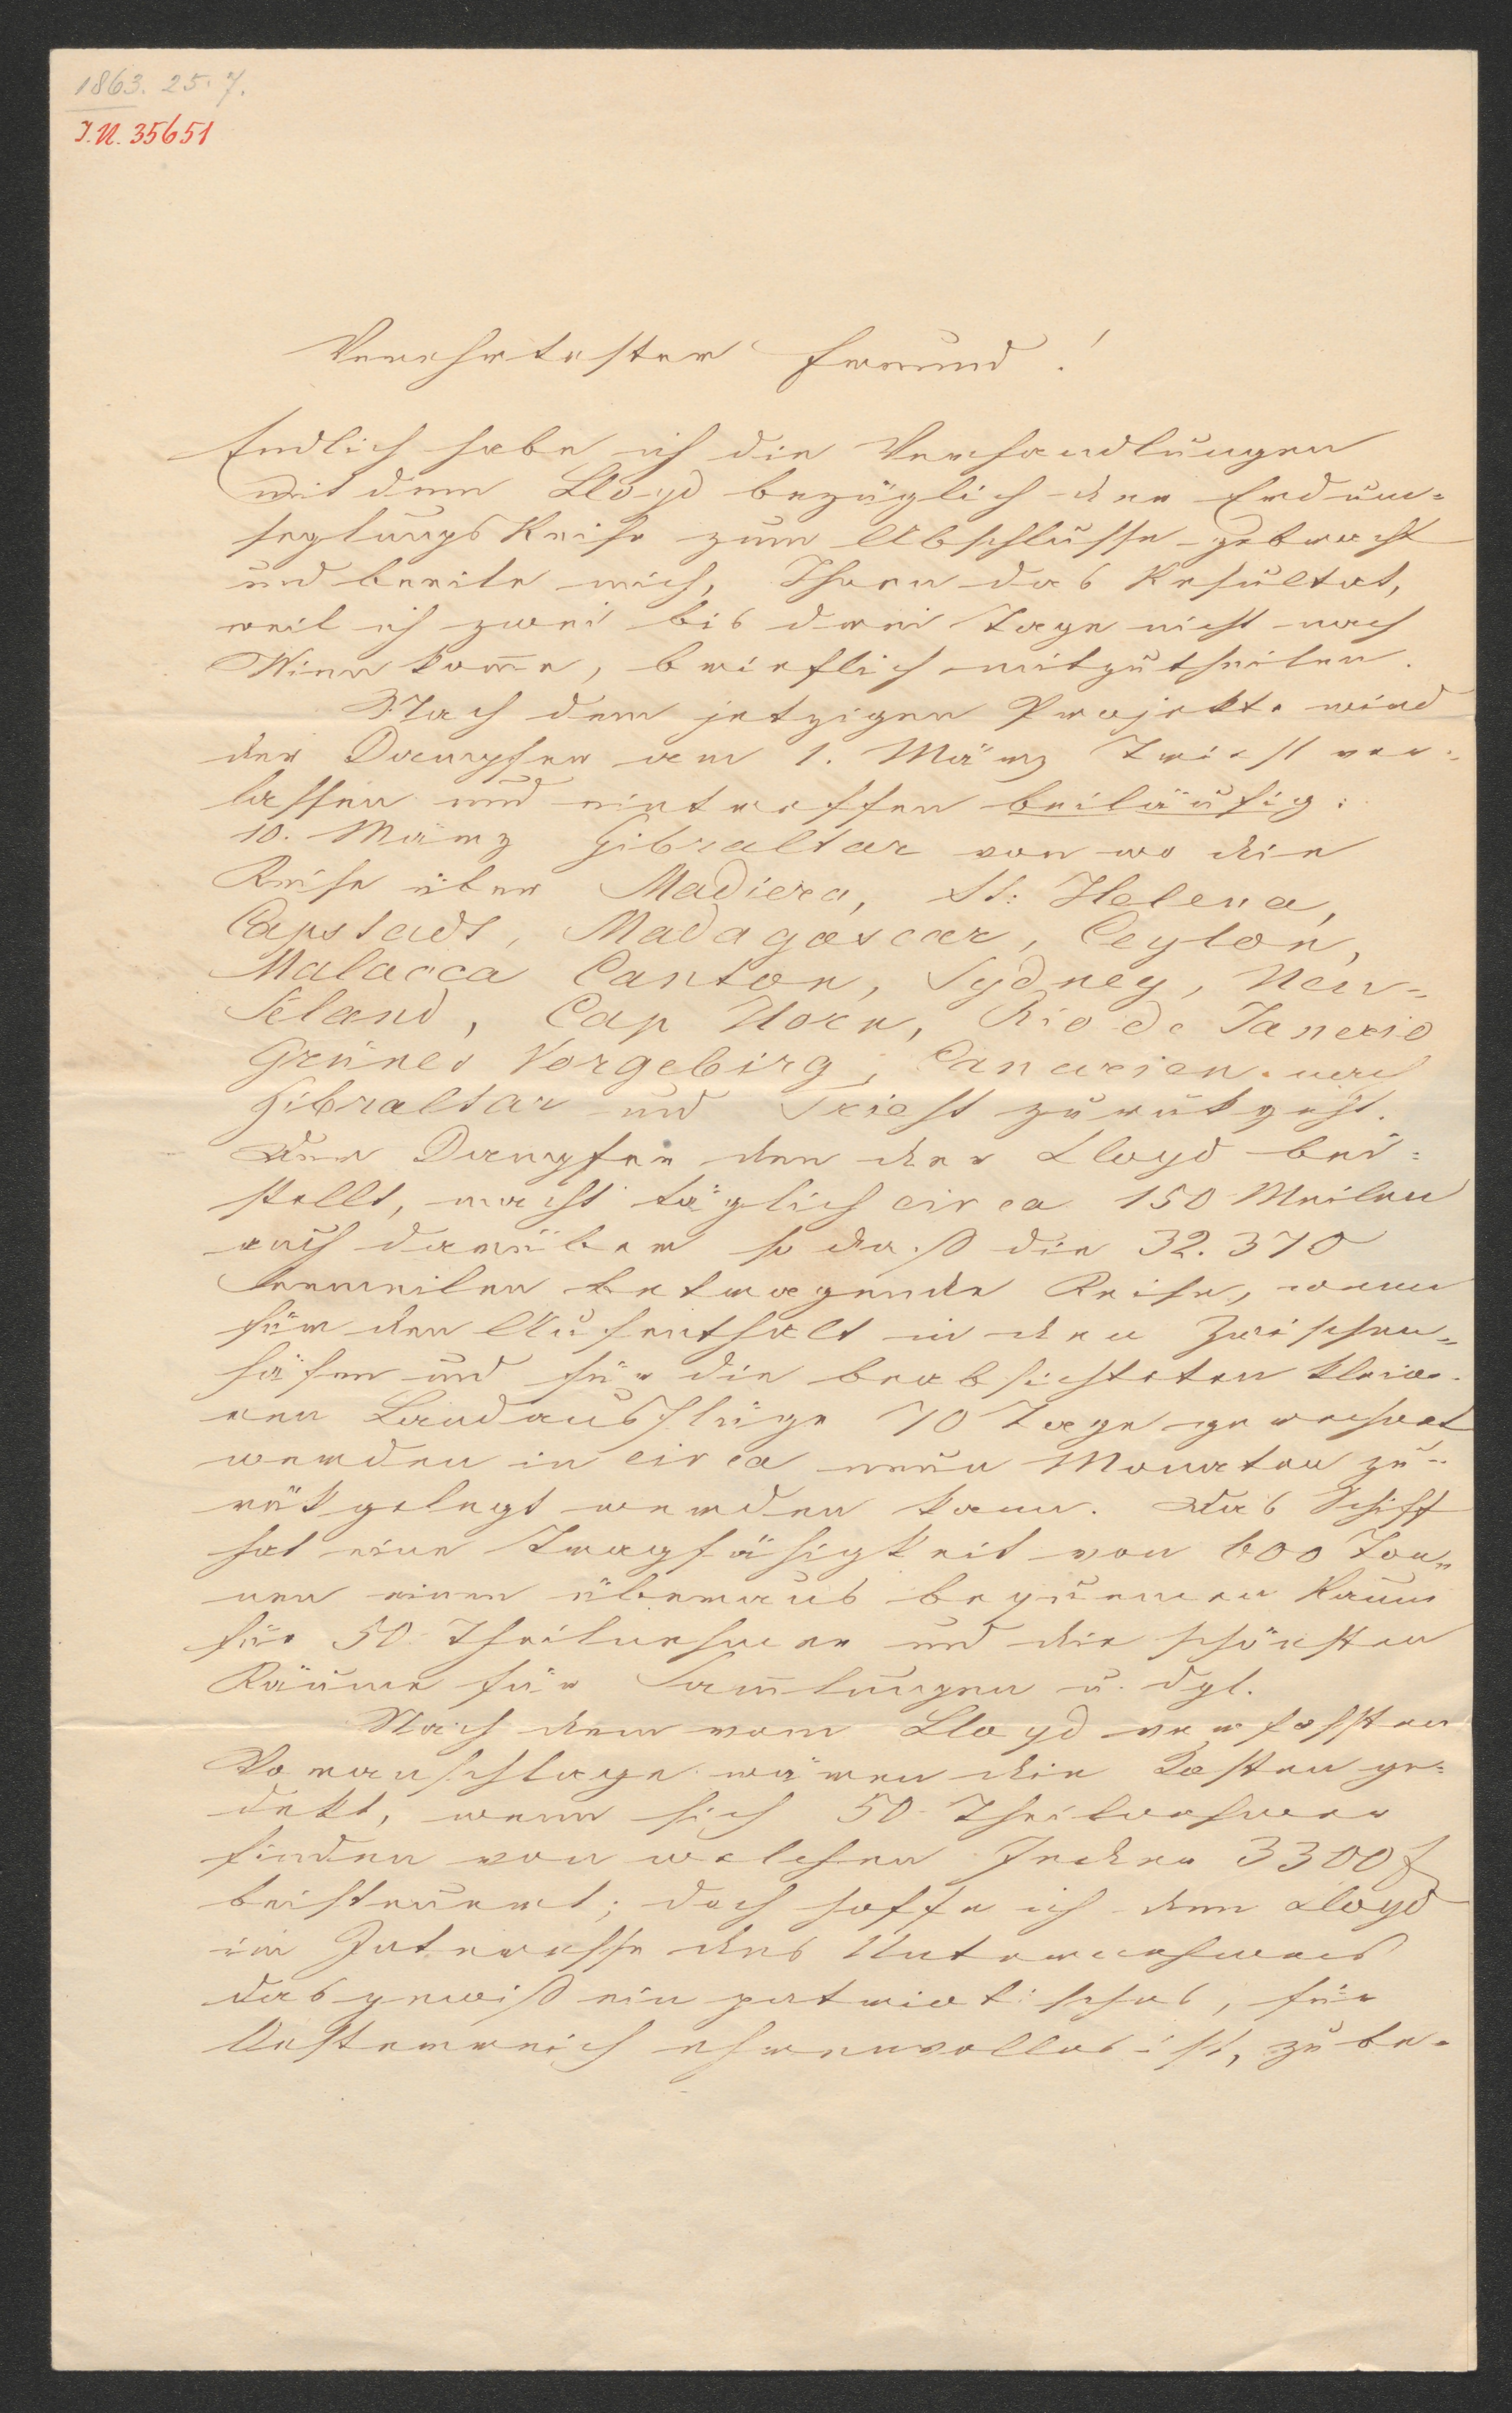 1863. 25. 7.
I.N. 35651
Verehrtester Freund!
Endlich habe ich die Verhandlungen
mit dem Lloyd bezüglich der Erdum=
seglungs Reise zum Abschlusse gebracht
und beeile mich, Ihnen das Resultat,
weil ich zwei bis drei Tage nicht nach
Wien kom̅e, brieflich mitzutheilen.
Nach dem jetzigen Projekte wird
der Dampfer am 1. März Triest ver=
lassen und eintreffen beiläufig:
10. März Gibraltar von wo die
Reise über Madiera, St: Helena,
Capstadt, Madagascar, Ceylon,
Malacca Canton, Sydney, Neu=
Seland, Cap Horn, Rio de Janerio
Grünes Vorgebirg, Canarien nach
Gibraltar und Triest zurükgeht.
Der Dampfer den der Lloyd bei=
stellt, macht täglich circa 150 Meilen
auch darüber so daß die 32.370
Seemeilen betragende Reise, wenn
für den Aufenthalt in den Zwischen=
häfen und für die beabsichteten klein=
eren Landausflüge 70 Tage gerechnet
werden in circa neun Monaten zu=
rükgelegt werden kann. Das Schiff
hat eine Tragfähigkeit von 600 Ton=
nen einen überaus bequemen Raum
für 50 Theilnehmer und die schönsten
Räume für Sam̅lungen u. dgl.
Nach dem vom Lloyd verfassten
Voranschlage wären die Kosten ge=
dekt, wenn sich 50 Theilnehmer
finden von welchen Jeder 3300 f
beisteuert; doch hoffe ich den Lloyd
im Interesse des Unternehmens
das gewiß ein patriotisches, für
Oesterreich ehrenvolles ist, zu be=